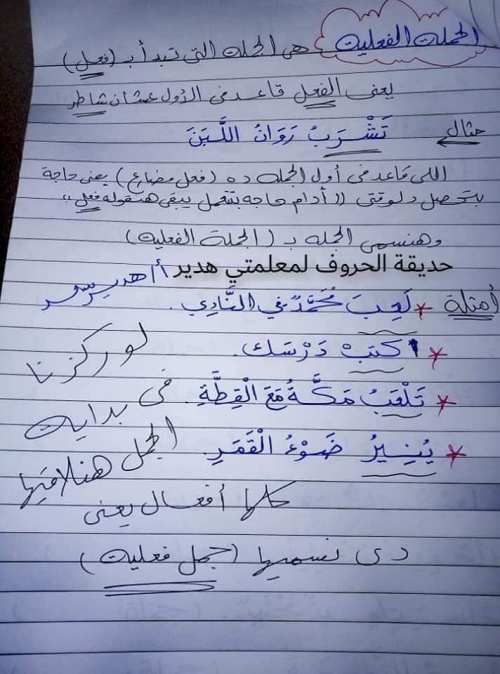 الجملة الفعلية هي الجملة التي تبدأ بـ (فعل)
يعنى الفعل قاعد فى الأول عشان شاطر
مثال تَشْرَبُ رَوَانُ اللَّبَنَ
اللى قاعد فى أول الجملة ده (فعل مضارع) يعنى حاجة
بتحصل دلوقتى "أدام حاجه بتتعمل يبقى هنقوله فعل"
وهنسمى الجمله بـ (الجملة الفعلية)
حديقة الحروف لمعلمتي هدير أ/ هدير
أمثلة * لَعِبَ مُحَمَّدٌ في النَّادِي.
* اكتَبْ دَرْسَك.
* تَلْعَبُ مَكَّةُ مَعَ الْقِطَّةِ.
* يُنِيرُ ضَوْءُ الْقَمَرِ.
لو ركزنا
فى بداية
الجمل هنلاقيها
كلها أفعال يعنى
دى نسميها (جمل فعلية)